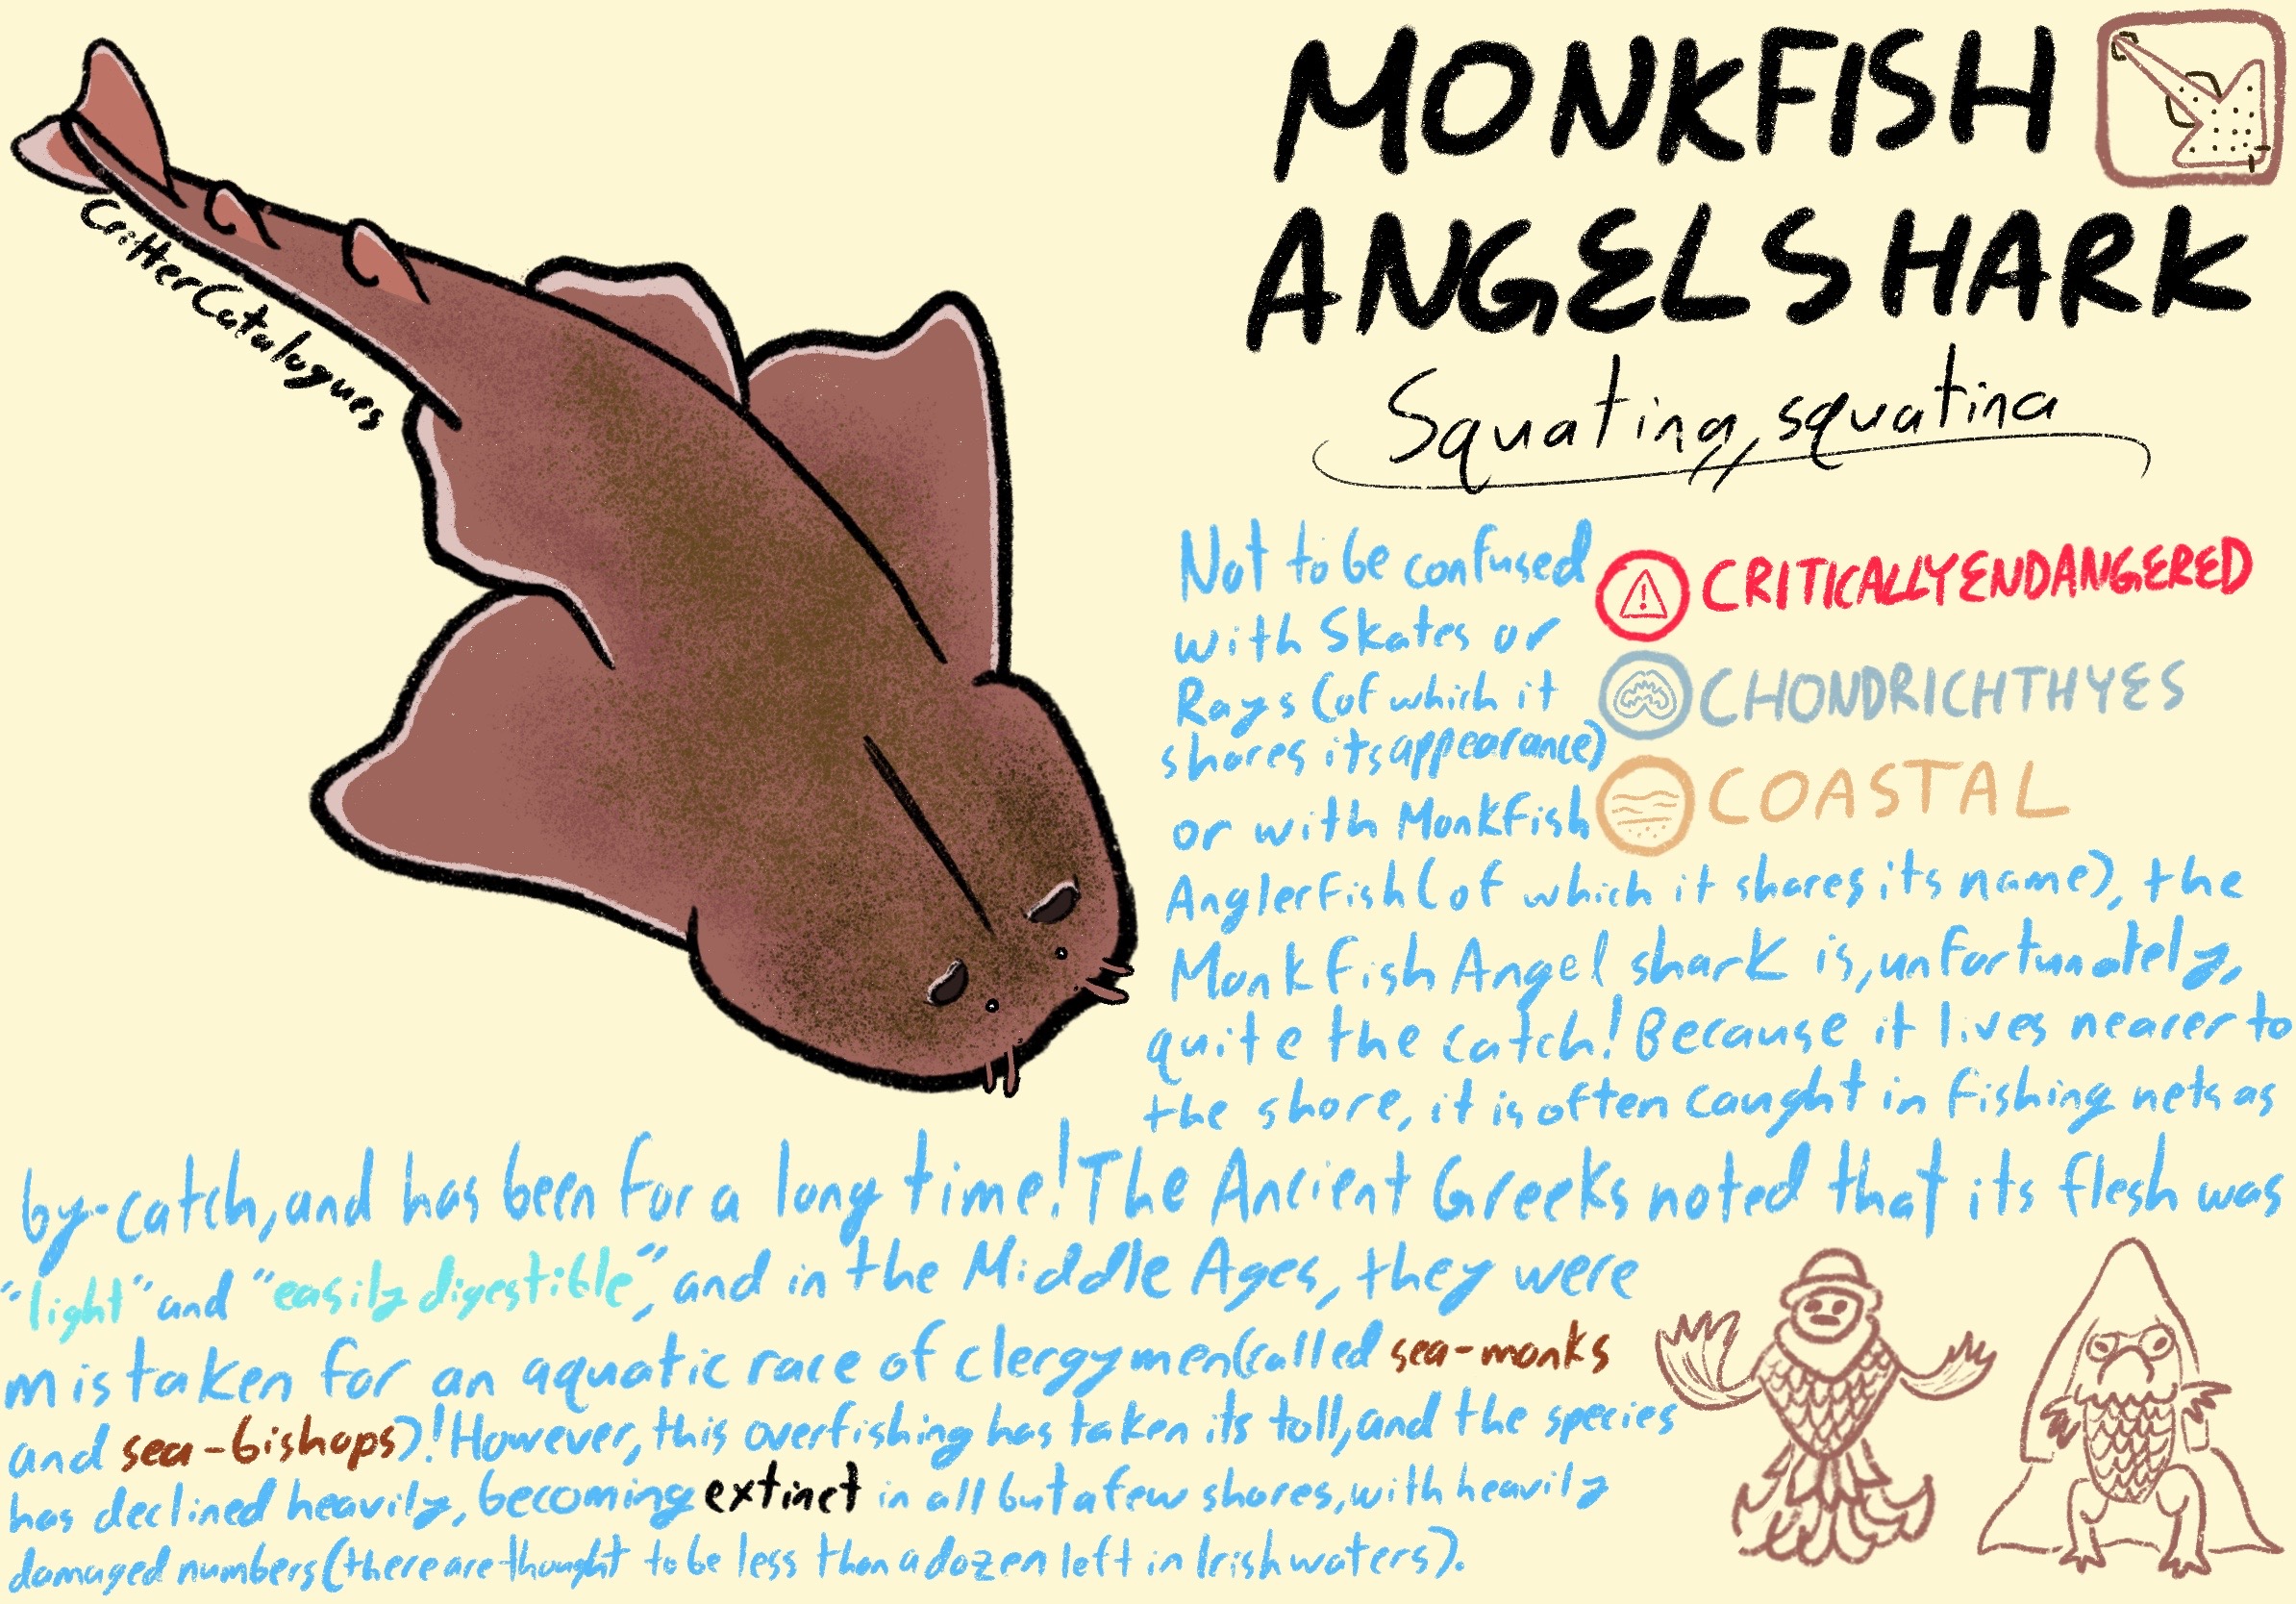 MONKFISH
ANGELSHARK
Squatina squatina
CritterCatalogues
CRITICALLY ENDANGERED
CHONDRICHTHYES
COASTAL
Not to be confused
with Skates or
Rays (of which it
shares its appearance)
or with Monkfish
Anglerfish (of which it shares its name), the
Monkfish Angel shark is, unfortunately,
quite the catch! Because it lives nearer to
the shore, it is often caught in fishing nets as
by-catch, and has been for a long time! The Ancient Greeks noted that its flesh was
"light" and "easily digestible", and in the Middle Ages, they were
mistaken for an aquatic race of clergymen (called sea-monks
and sea-bishops)! However, this overfishing has taken its toll, and the species
has declined heavily, becoming extinct in all but a few shores, with heavily
damaged numbers (there are thought to be less than a dozen left in Irish waters).